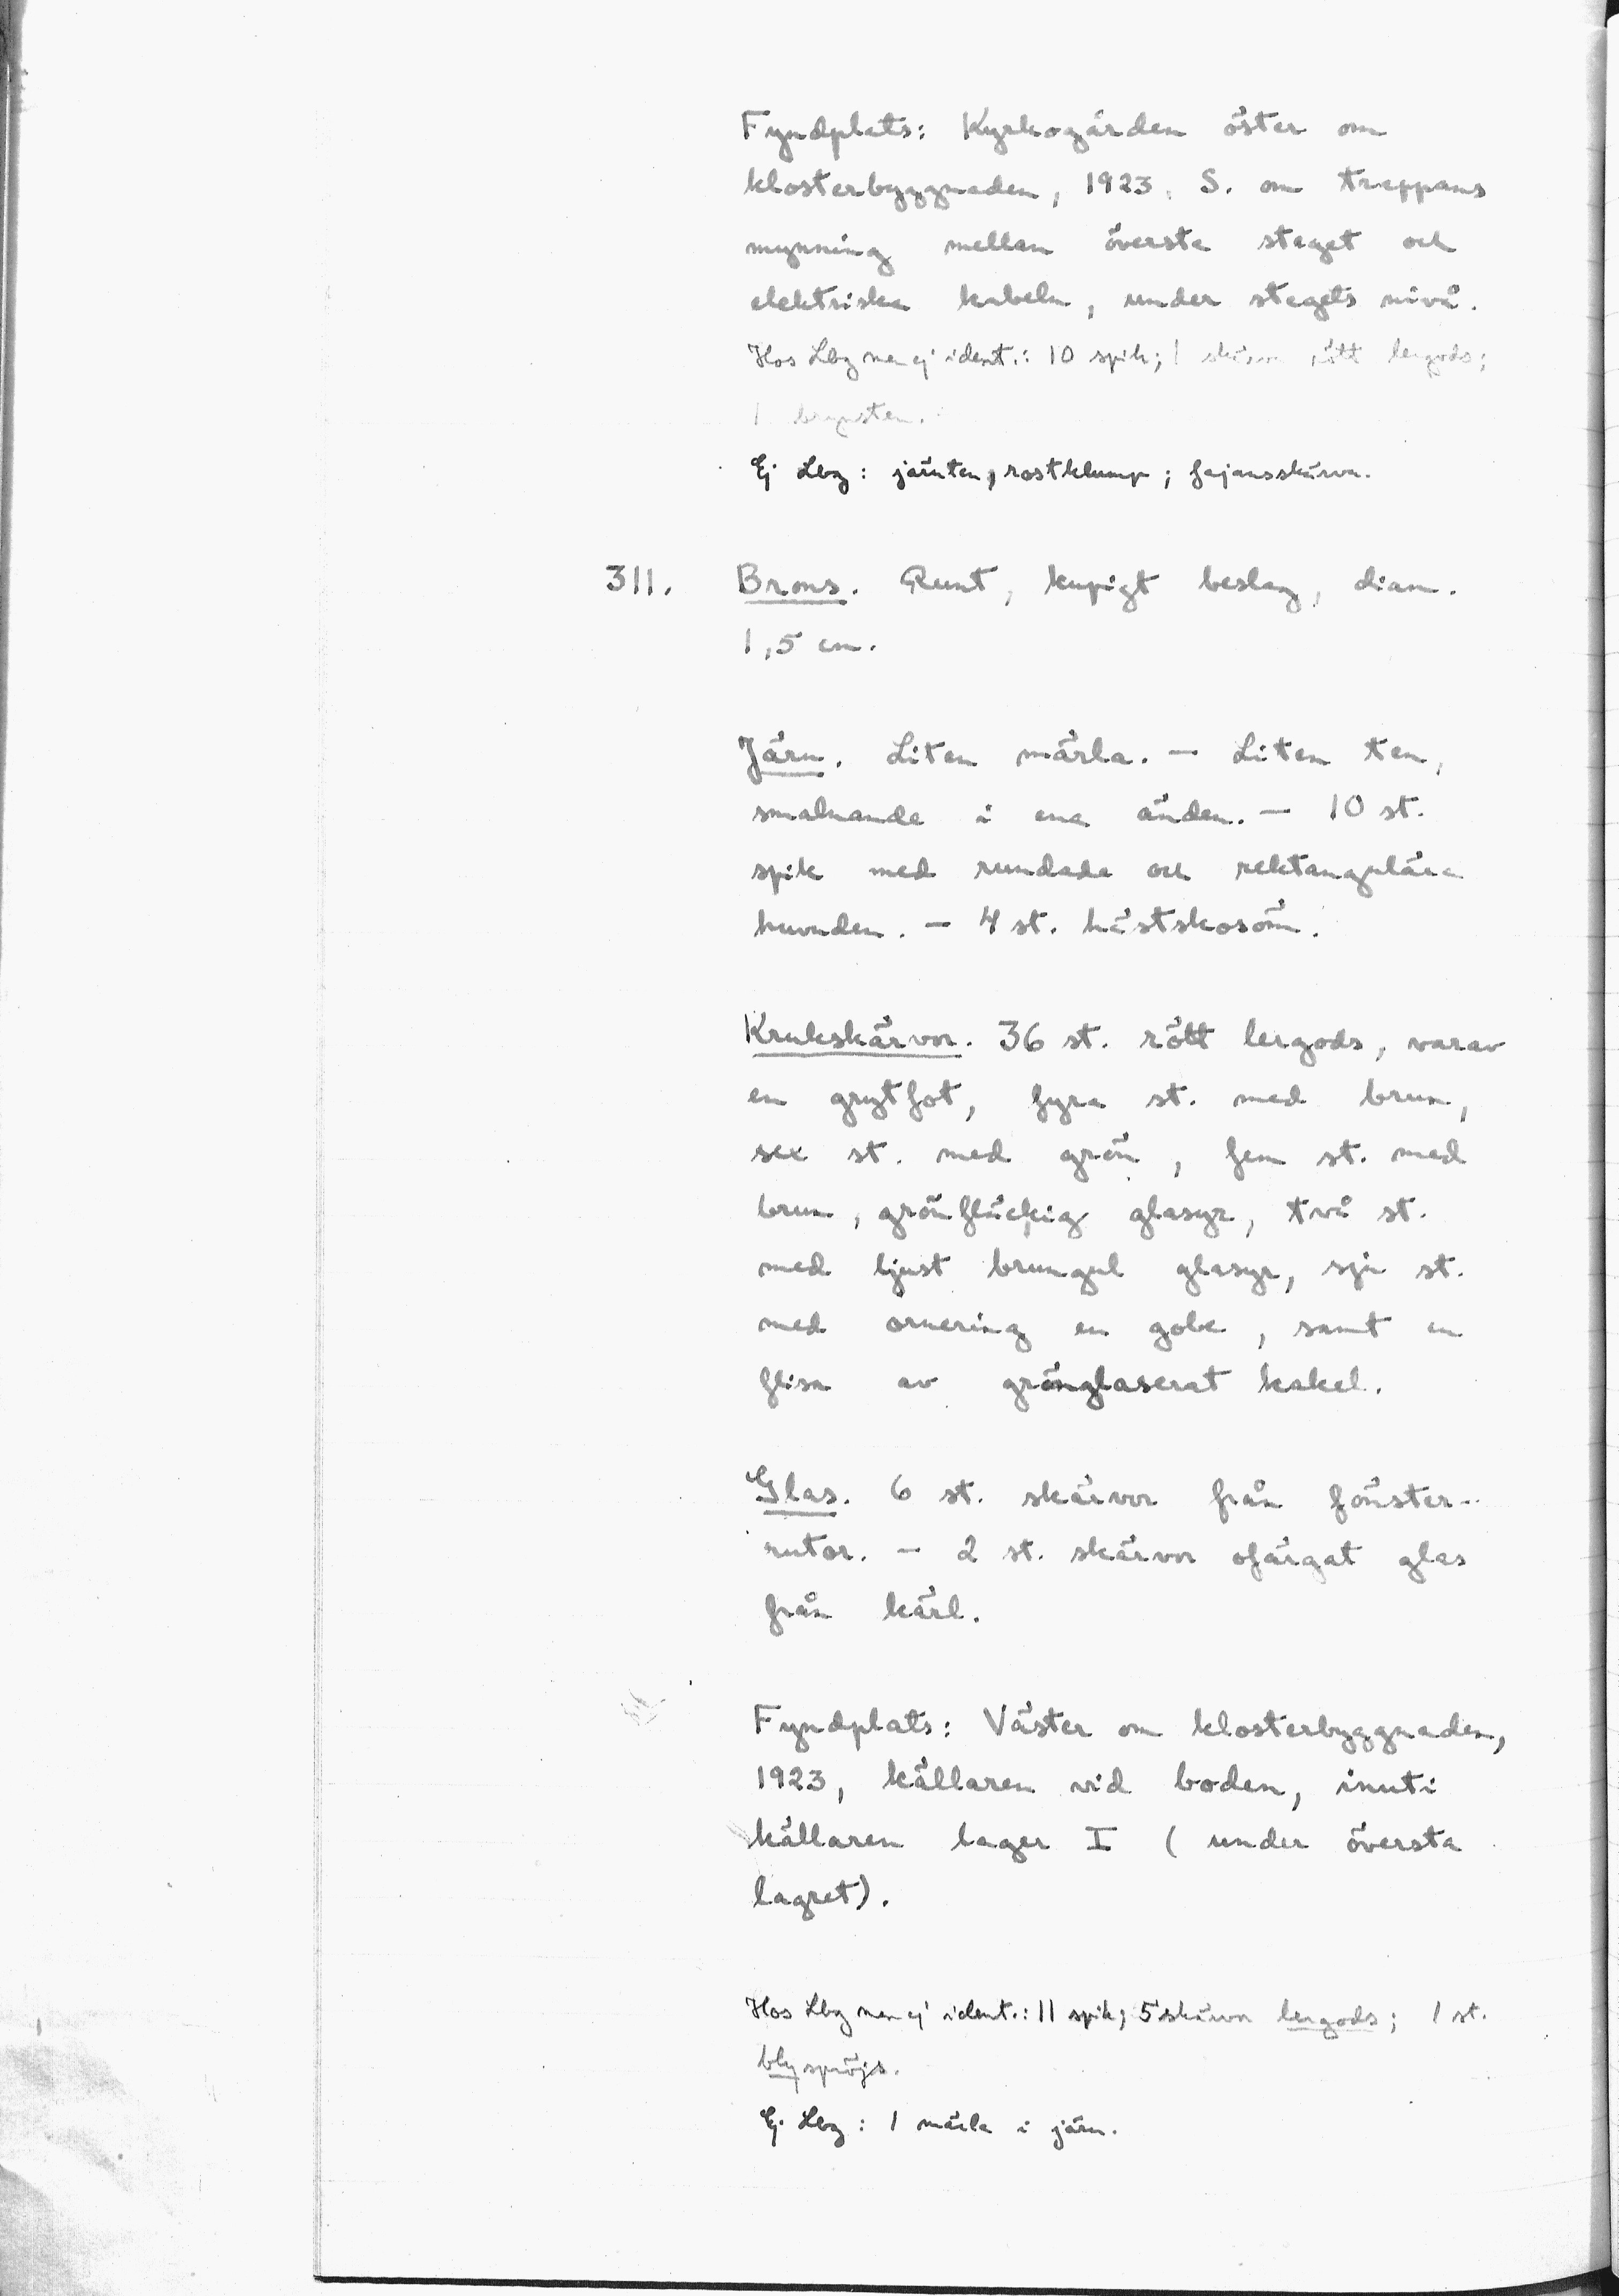 Fyndplats: Kyrkogården öster om
klosterbyggnaden, 1923, S. om trappans
mynning mellan översta steget och
elektriska kabeln, under stegets nivå.
Hos Lbg men ej ident.: 10 spik; 1 skärva rött lergods;
1 brynsten.
Ej Lbg: järnten, rostklump; fajansskärva.
311. Brons. Runt, kupigt beslag, diam.
1,5 cm.
Järn. Liten märla. — Liten ten,
smalnande i ena änden. — 10 st.
spik med rundade och rektangulära
huvuden. — 4 st. hästskosöm.
Krukskärvor. 36 st. rött lergods, varav
en grytfot, fyra st. med brun,
sex st. med grön, fem st. med
brun, grönfläckig glasyr, två st.
med ljust brungul glasyr, sju st.
med ornering en gobe, samt en
flisa av grönglaserat kakel.
Glas. 6 st. skärvor från fönster-
rutor. — 2 st. skärvor ofärgat glas
från kärl.
Fyndplats: Väster om klosterbyggnaden,
1923, källaren vid boden, inuti
källaren lager I (under översta
lagret).
Hos Lbg men ej ident.: 11 spik; 5 skärvor lergods; 1 st.
blyspröjs.
Ej Lbg: 1 märla i järn.